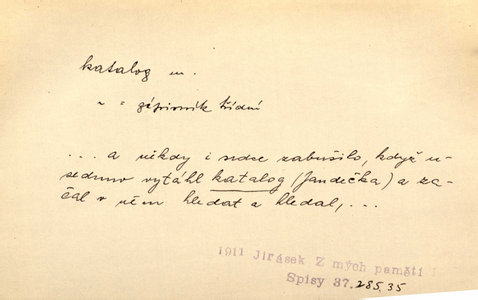 katalog m.
" = zápisník třídní
... a někdy i srdce zabušilo, když u-
sednuv vytáhl katalog (Jandečka) a za-
čal v něm hledat a hledal, ...
1911 Jirásek Z mých pamětí I
Spisy 37. 285. 35